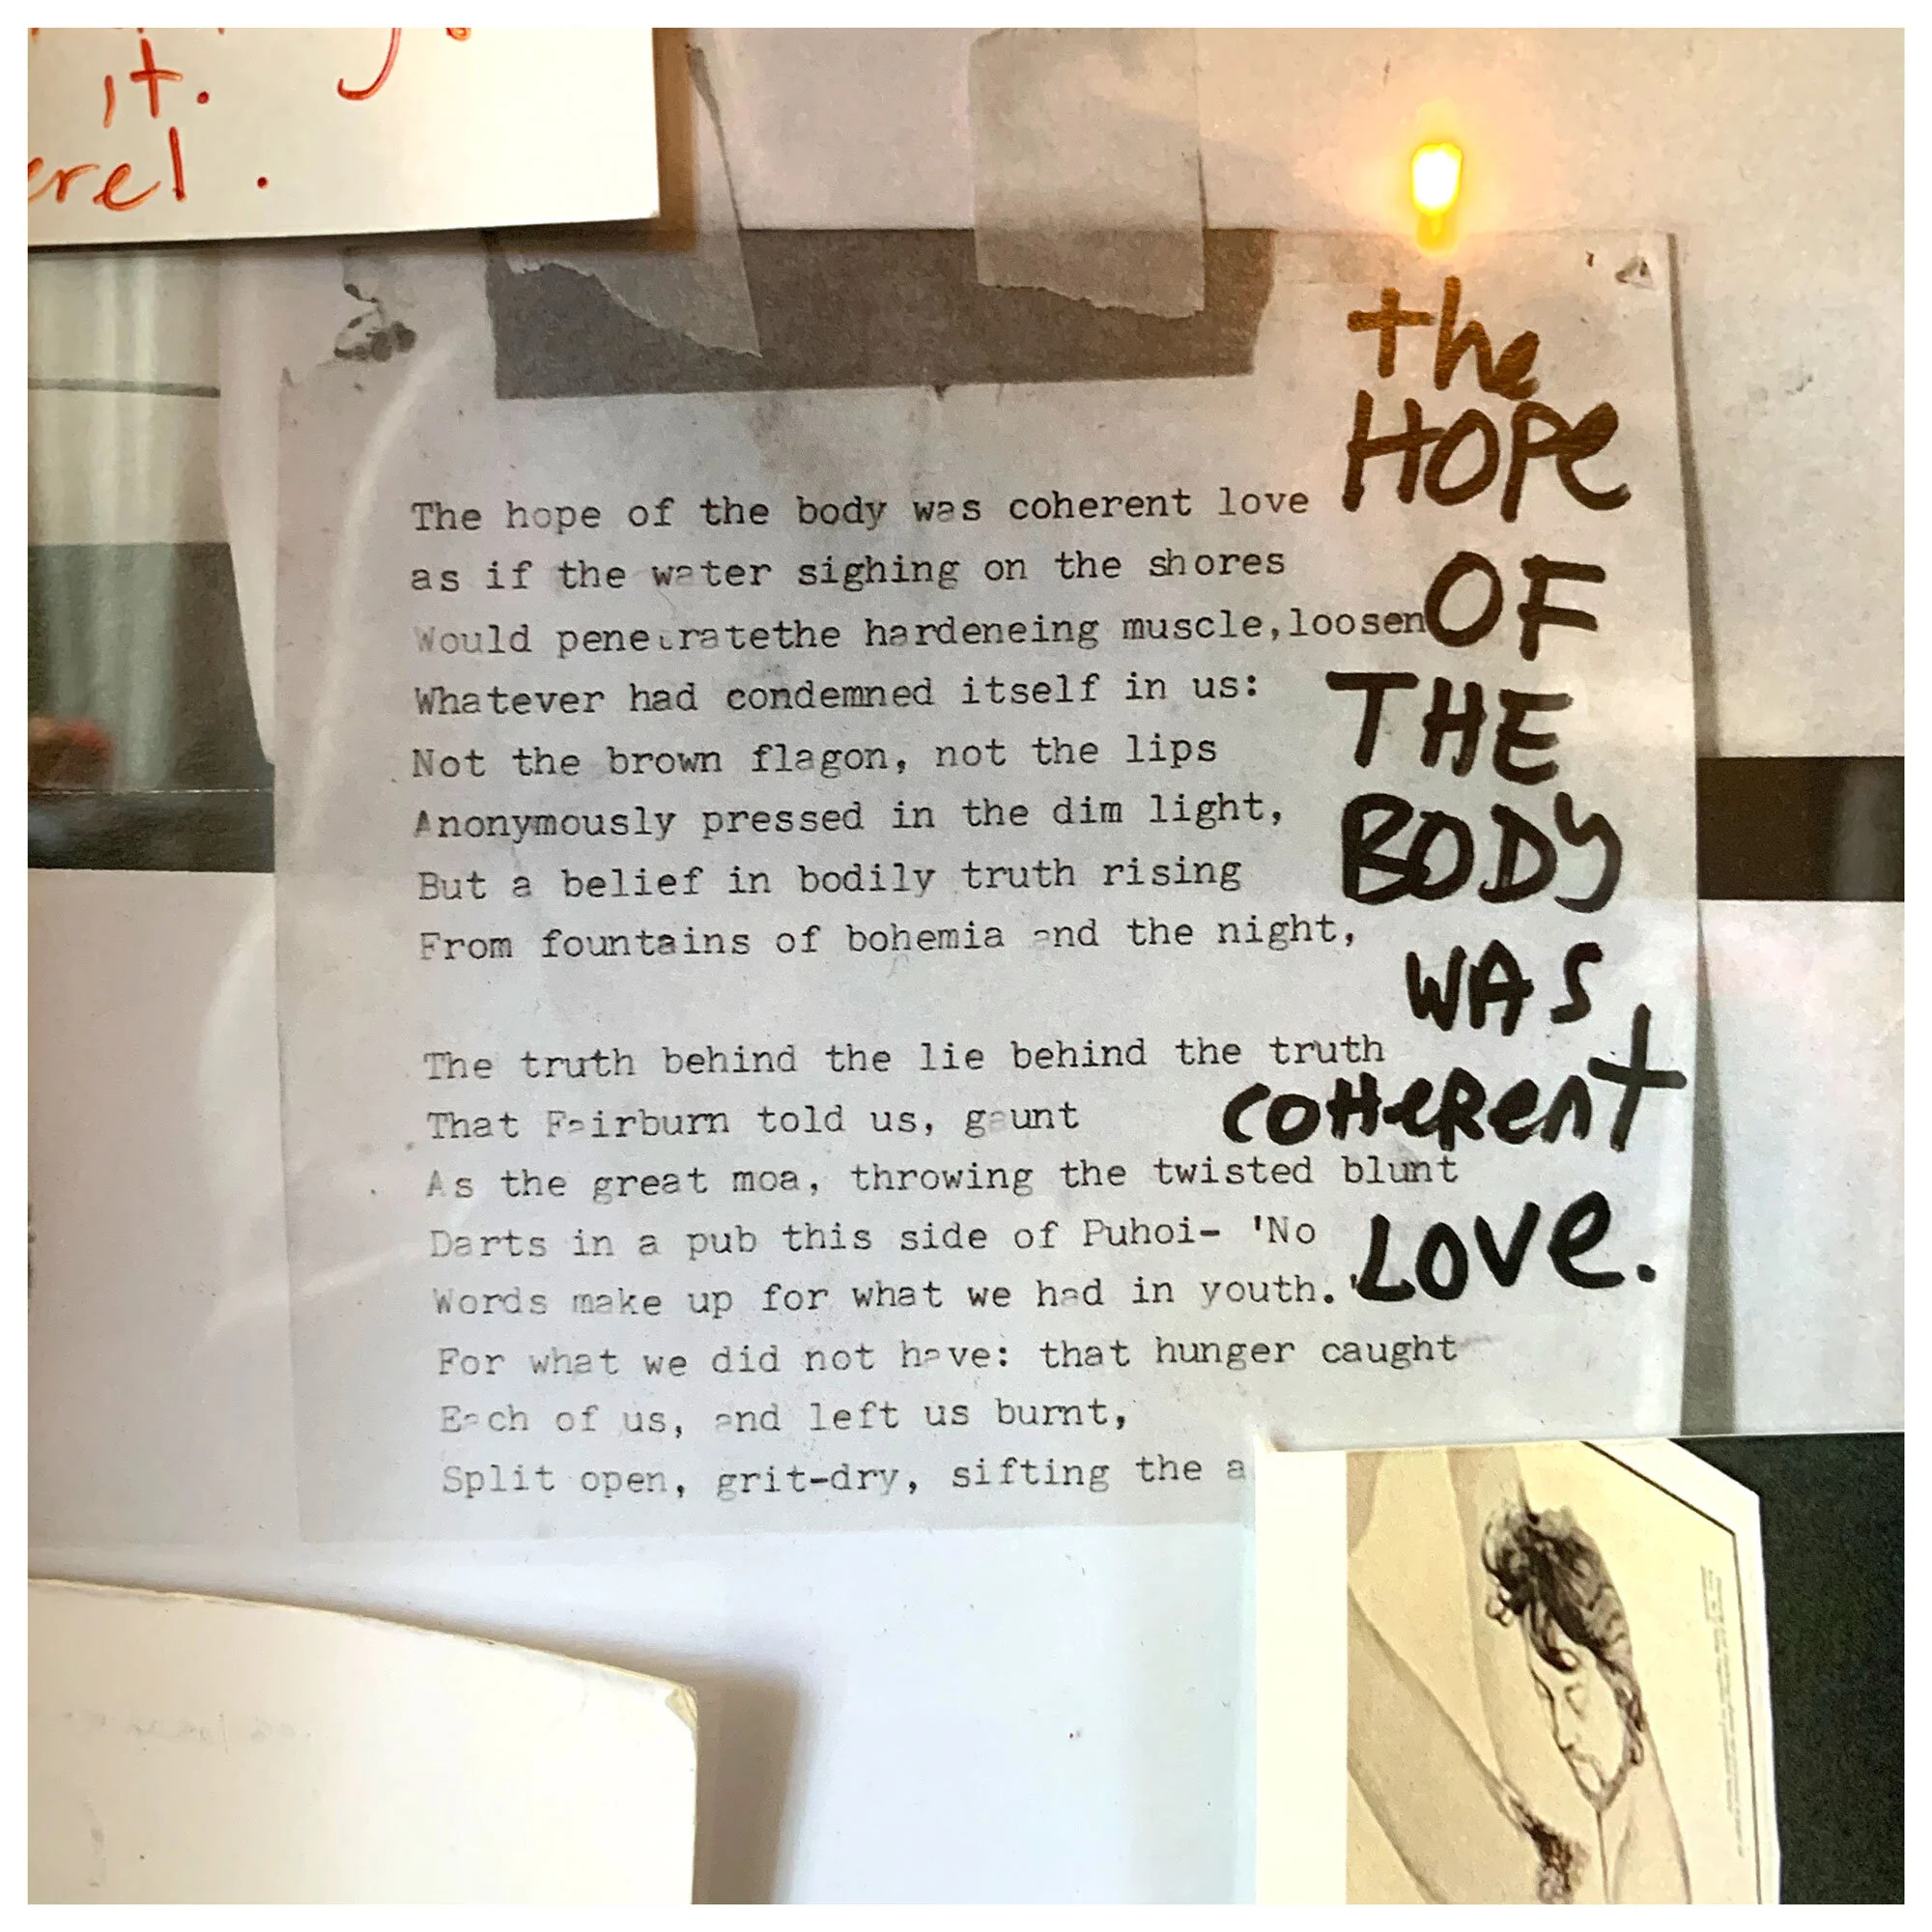 it.
The hope of the body was coherent love
as if the water sighing on the shores
Would penetratethe hardeneing muscle,loosen
Whatever had condemned itself in us:
Not the brown flagon, not the lips
Anonymously pressed in the dim light,
But a belief in bodily truth rising
From fountains of bohemia and the night,
The truth behind the lie behind the truth
That Fairburn told us, gaunt
As the great moa, throwing the twisted blunt
Darts in a pub this side of Puhoi- 'No
Words make up for what we had in youth.'
For what we did not have: that hunger caught
Each of us, and left us burnt,
Split open, grit-dry, sifting the a
the
HOPe
OF
THE
BODY
WAS
COHeRent
LOVe.